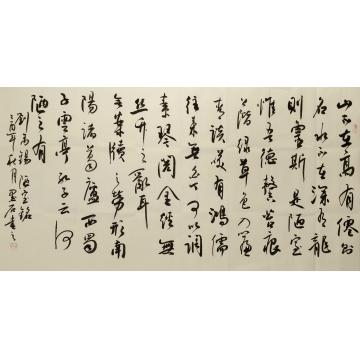 山不在高有僊則
名水不在深有龍
則靈斯是陋室
惟吾德馨苔痕
上階綠草色入簾
青談笑有鴻儒
往來無白丁可以調
素琴閱金經無
絲竹之亂耳
無案牘之勞形南
陽諸葛廬西蜀
子雲亭孔子云何
陋之有
劉禹錫陋室銘
年秋月